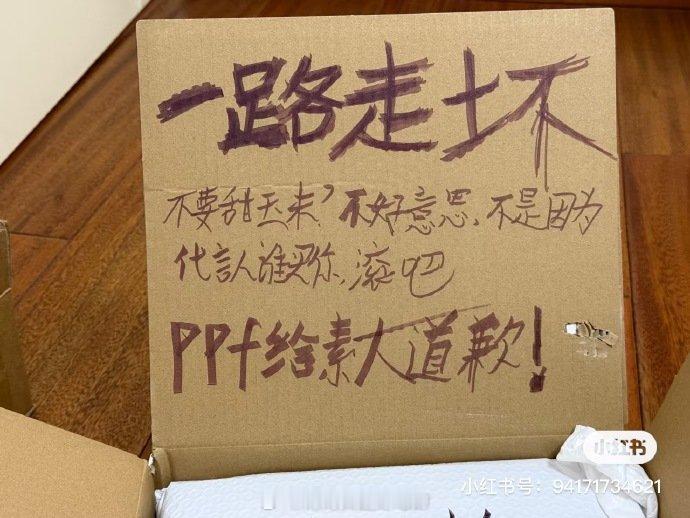 一路走坏
不要甜玉米?不好意思,不是因为
代言人谁买你,滚吧
PPf给素大道歉!
小红书
小红书号:94171734621